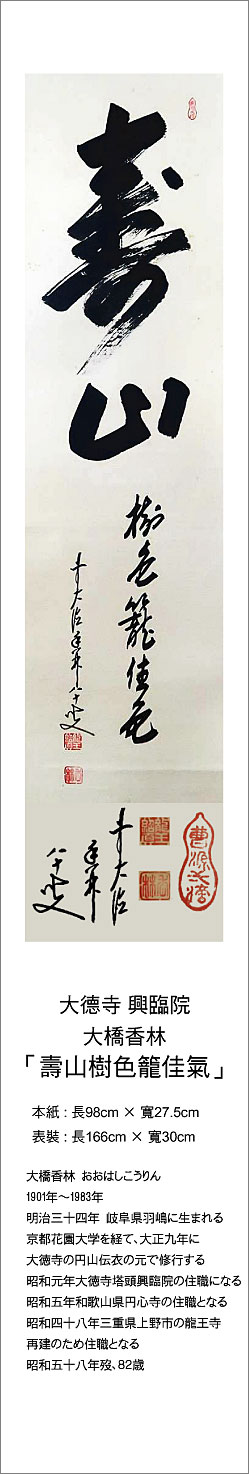 寿
山
樹色籠佳氣
大德寺 興臨院
大橋香林
「壽山樹色籠佳氣」
本紙 : 長98cm × 寬27.5cm
表裝 : 長166cm × 寬30cm
大橋香林 おおはしこうりん
1901年～1983年
明治三十四年 岐阜県羽嶋に生まれる
京都花園大学を経て、大正九年に
大徳寺の円山伝衣の元で修行する
昭和元年大徳寺塔頭興臨院の住職になる
昭和五年和歌山県円心寺の住職となる
昭和四十八年三重県上野市の龍王寺
再建のため住職となる
昭和五十八年歿、82歳